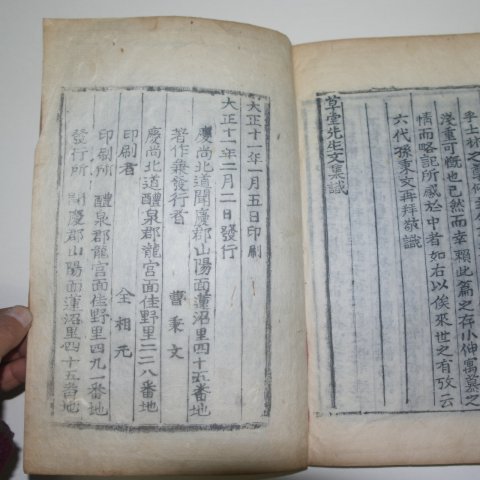 士林之
淺重可慨也已然而幸賴此篇之存小伸寓慕之
情而略記所感於中者如右以俟來世之有攷云
六代孫秉文再拜敬識
草堂先生文集識
大正十一年一月五日印刷
大正十一年二月二日發行
慶尚北道聞慶郡山陽面蓮沼里四十五番地
著作兼發行者 曺秉文
慶尚北道醴泉郡龍宮面佳野里二二八番地
印刷者 全相元
印刷所 醴泉郡龍宮面佳野里四九一番地
發行所 聞慶郡山陽面蓮沼里四十五番地